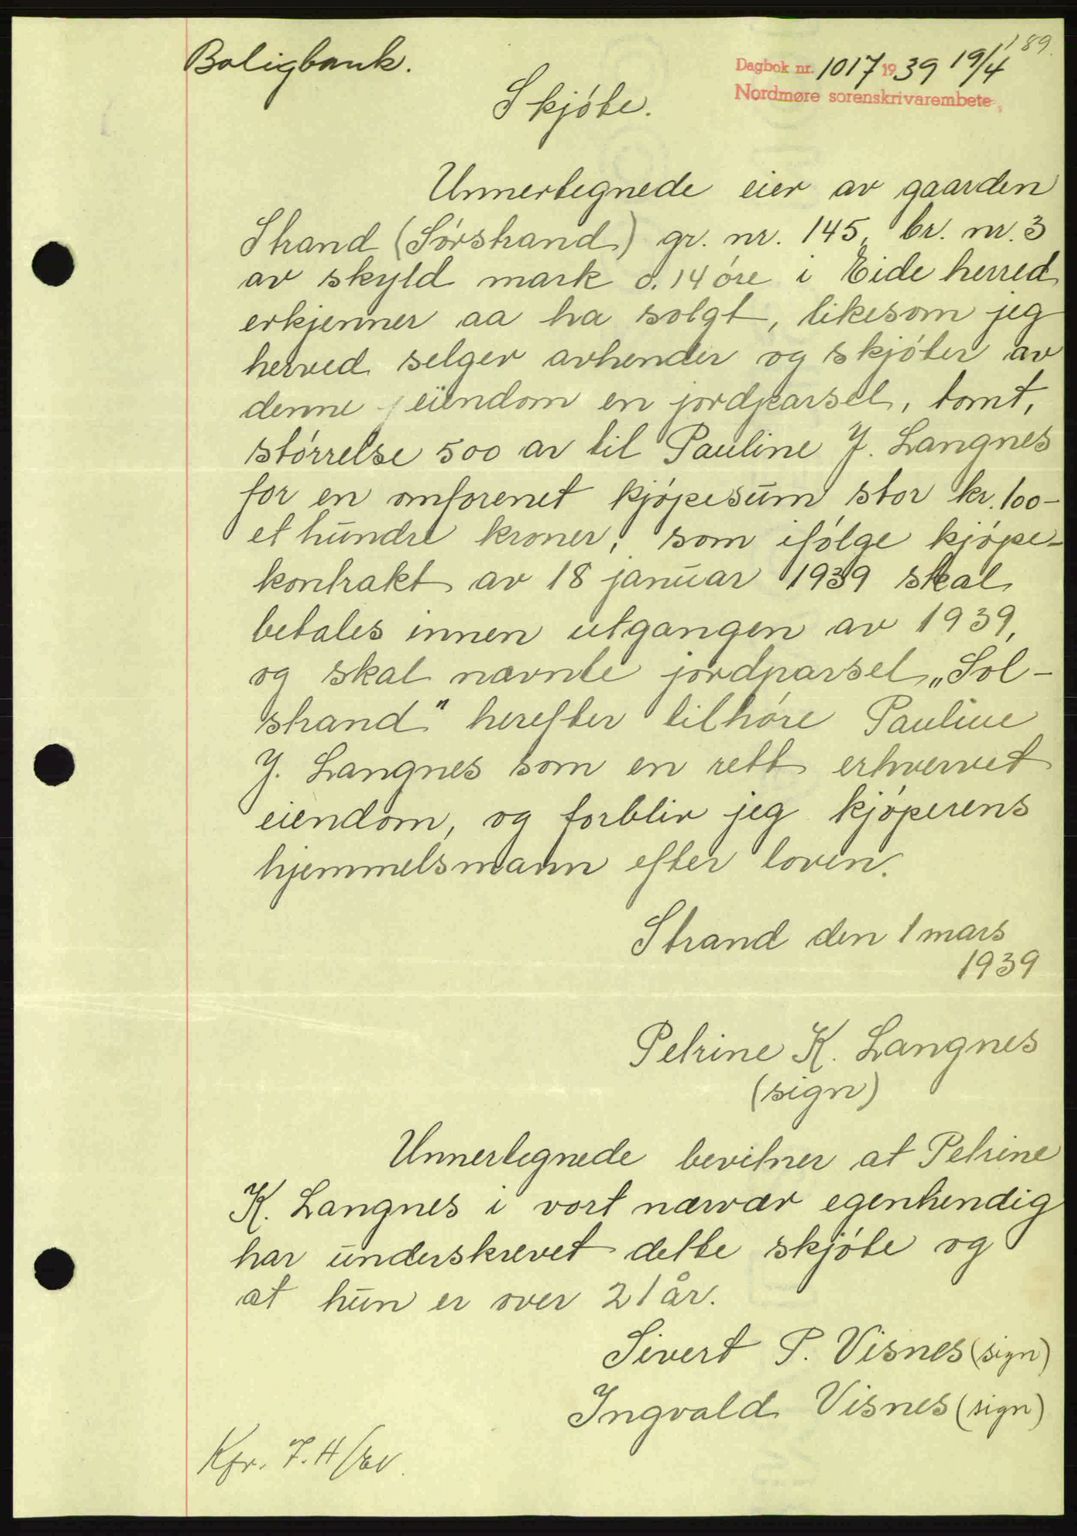 189.
Boligbank.
Dagbok nr. 1017 1939 19/4
Nordmøre sorenskrivarembete
Skjøte.
Unnertegnede eier av gaarden
Strand (Sørstrand) gr. nr. 145, br. nr. 3
av skyld mark 0.14 øre i Eide herred
erkjenner aa ha solgt, likesom jeg
herved selger avhender og skjøter av
denne eiendom en jordparsel, tomt,
størrelse 500 ar til Pauline J. Langnes
for en omforenet kjøpesum stor kr. 100-
et hundre kroner, som ifølge kjøpe-
kontrakt av 18 januar 1939 skal
betales innen utgangen av 1939,
og skal nævnte jordparsel „Sol-
strand" herefter tilhøre Pauline
J. Langnes som en rett erhvervet
eiendom, og forblir jeg kjøperens
hjemmelsmann efter loven.
Strand den 1 mars
1939
Petrine K. Langnes
(sign)
Unnertegnede bevitner at Petrine
K. Langnes i vort nærvær egenhendig
har underskrevet dette skjøte og
at hun er over 21 år.
Sivert P. Visnes (sign)
Ingvald Visnes (sign)
Kfr.